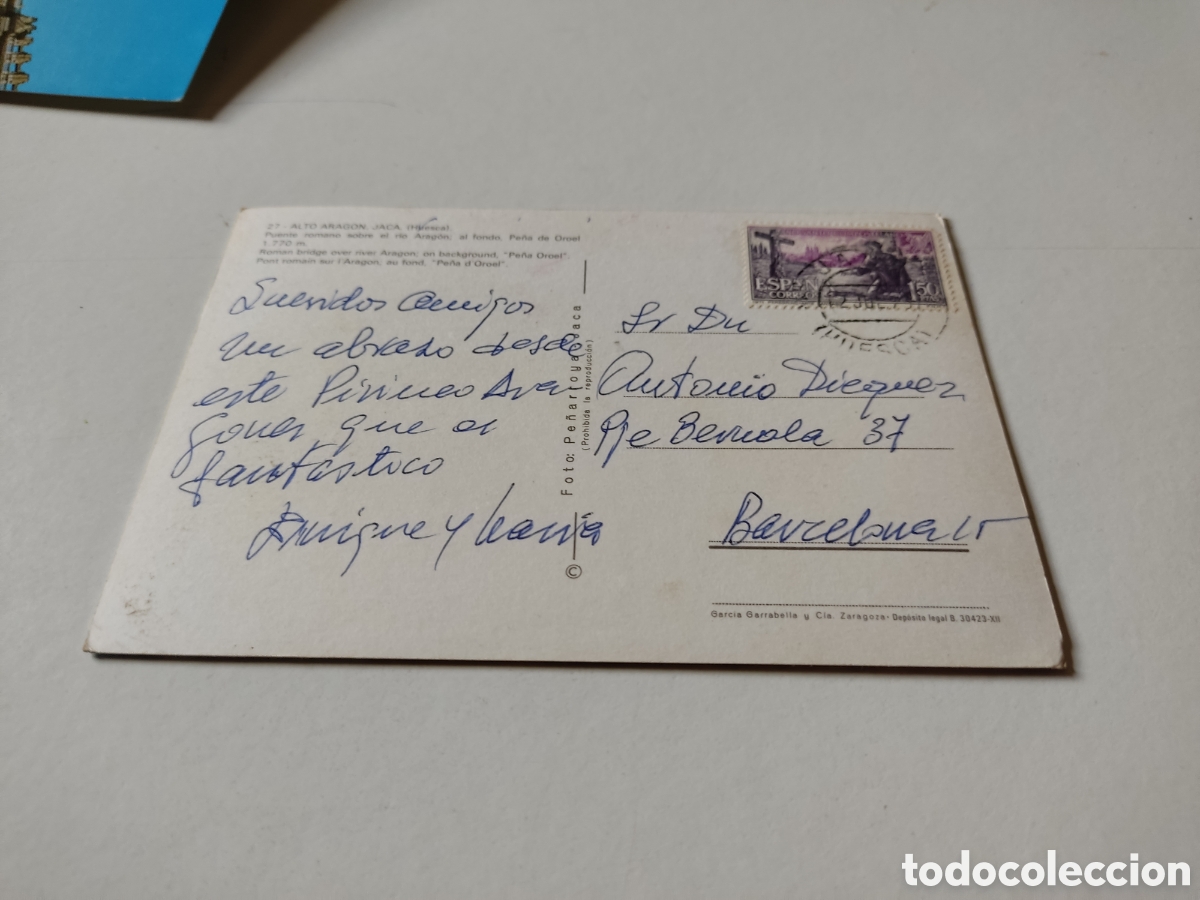 27 - ALTO ARAGON. JACA. (Huesca)
Puente romano sobre el río Aragón; al fondo, Peña de Oroel
1.770 m.
Roman bridge over river Aragon; on background, "Peña Oroel".
Pont romain sur l'Aragon; au fond, "Peña d'Oroel".
Queridos amigos
un abrazo desde
este Pirineo Ara
gones que es
fantástico
Enrique y María
© Foto: Peñarroya
(Prohibida la reproducción)
ESPAÑA
CORREOS
1,50
(HUESCA)
Sr Dn
Antonio Dieguez
Pje Bernola 37
Barcelona
Garcia Garrabella y Cía. Zaragoza - Depósito legal B. 30423-XII
todocoleccion